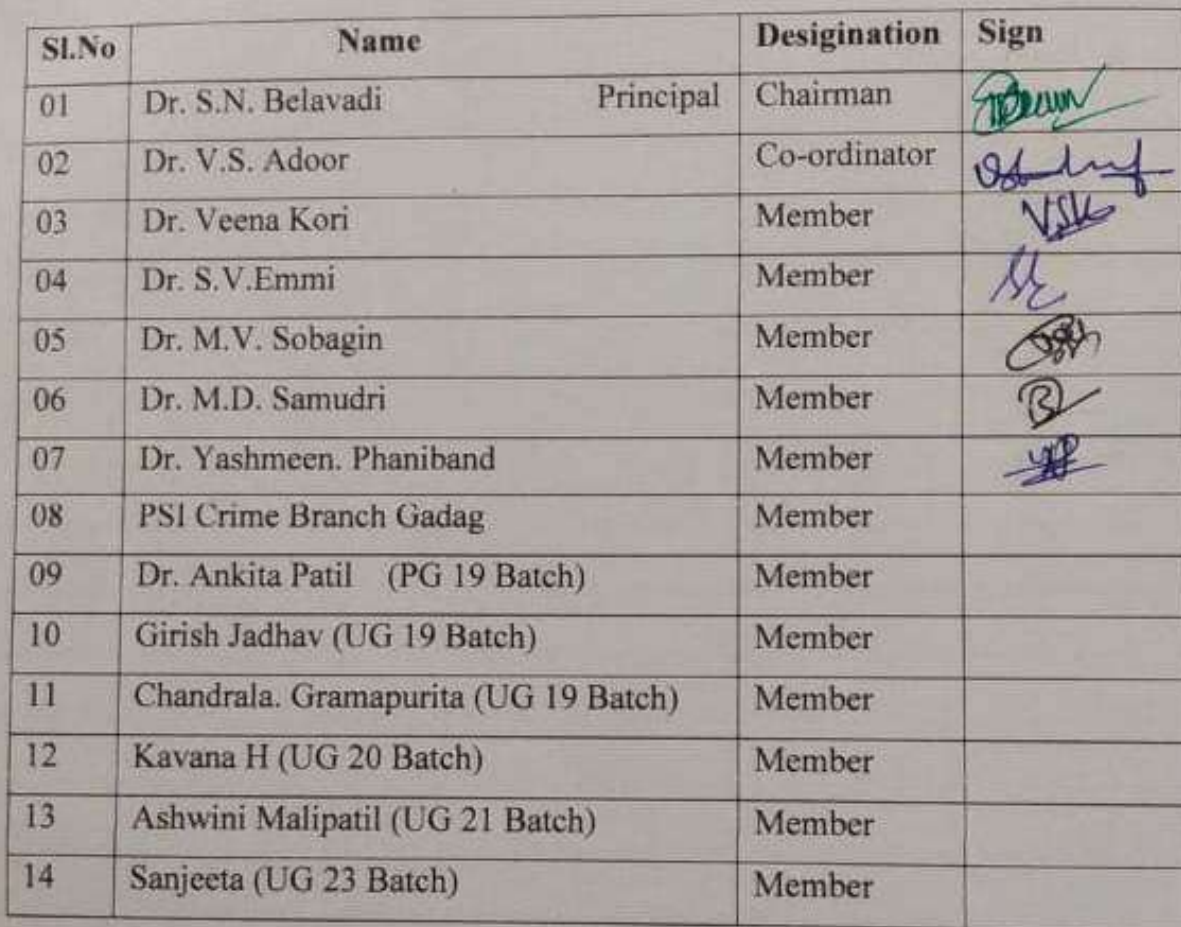 Sl.No Name Desigination Sign
01 Dr. S.N. Belavadi Principal Chairman
02 Dr. V.S. Adoor Co-ordinator
03 Dr. Veena Kori Member
04 Dr. S.V.Emmi Member
05 Dr. M.V. Sobagin Member
06 Dr. M.D. Samudri Member
07 Dr. Yashmeen. Phaniband Member
08 PSI Crime Branch Gadag Member
09 Dr. Ankita Patil (PG 19 Batch) Member
10 Girish Jadhav (UG 19 Batch) Member
11 Chandrala. Gramapurita (UG 19 Batch) Member
12 Kavana H (UG 20 Batch) Member
13 Ashwini Malipatil (UG 21 Batch) Member
14 Sanjeeta (UG 23 Batch) Member